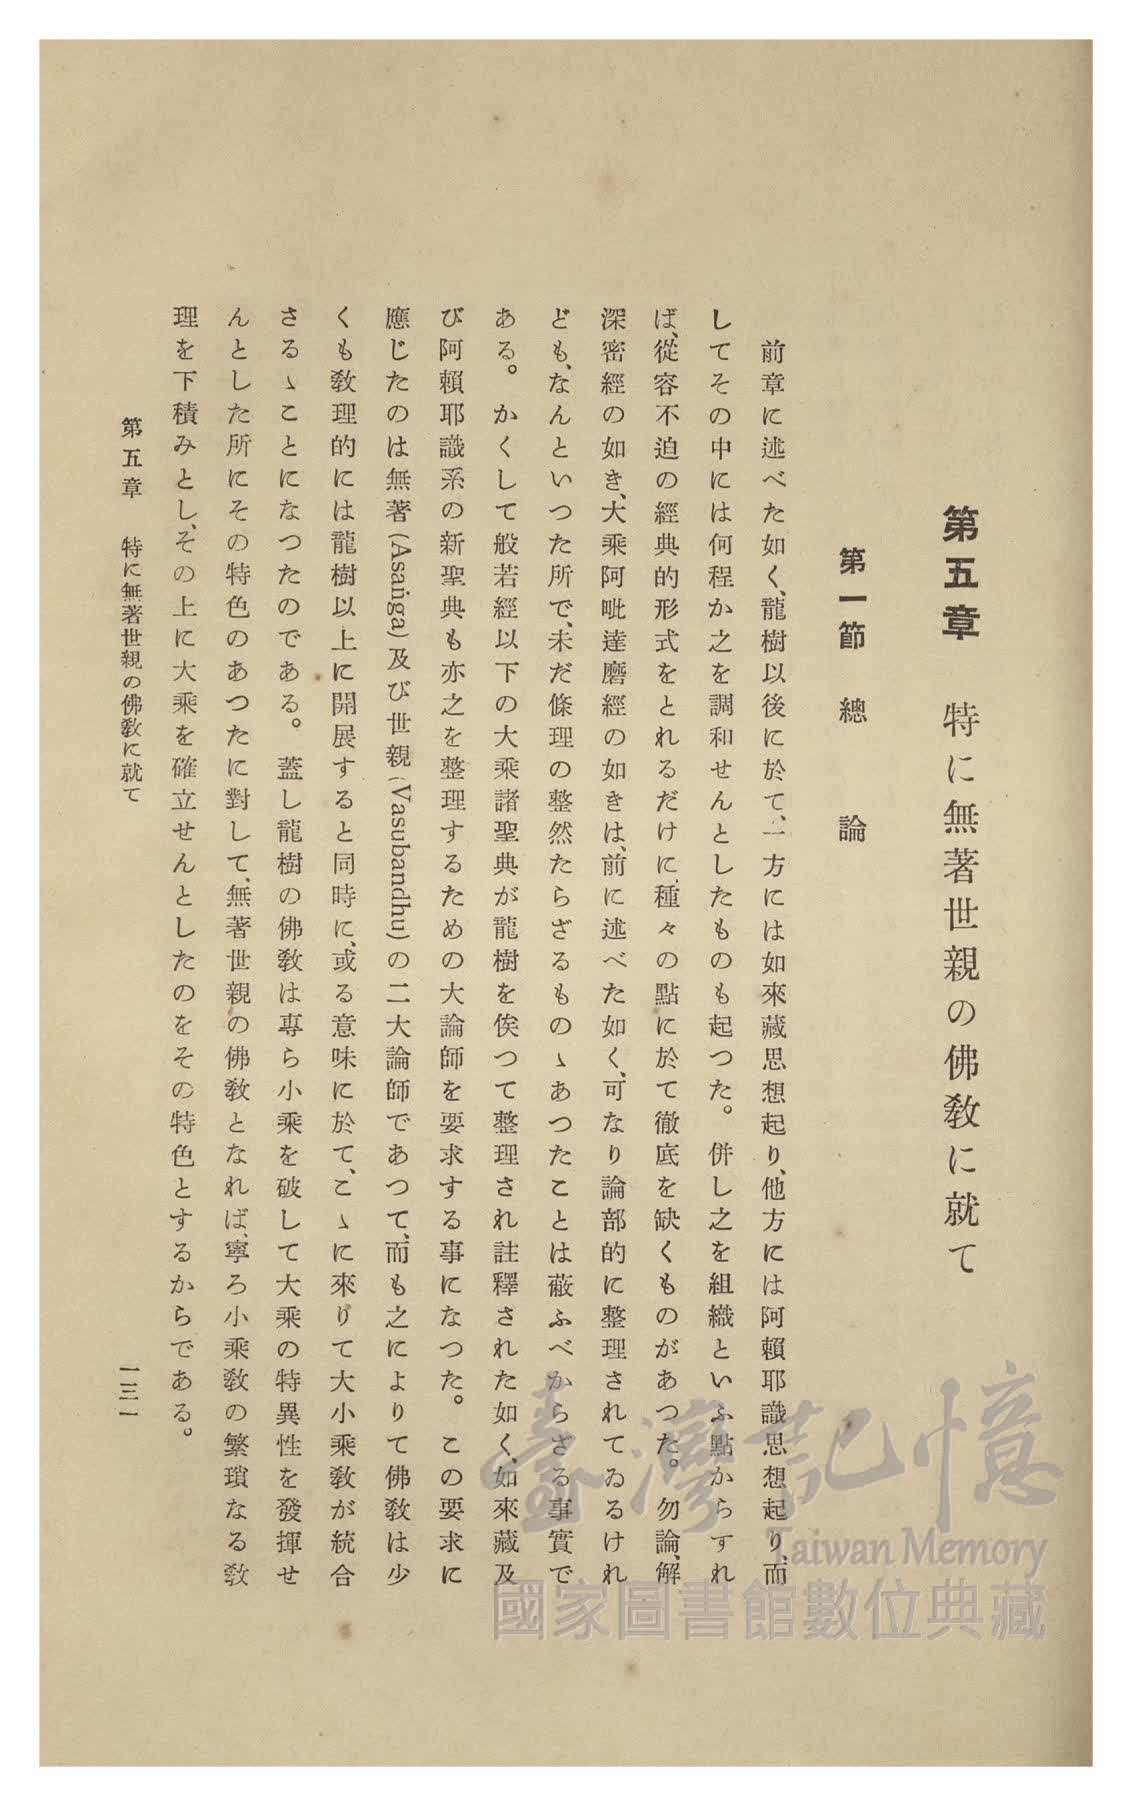 第五章　特に無著世親の佛教に就て
第一節　總論
前章に述べた如く、龍樹以後に於て、一方には如來藏思想起り、他方には阿賴耶識思想起り、而
してその中には何程か之を調和せんとしたものも起つた。併し之を組織といふ點からすれ
ば、從容不迫の經典的形式をとれるだけに、種々の點に於て徹底を缺くものがあつた。勿論、解
深密經の如き、大乘阿毗達磨經の如きは、前に述べた如く、可なり論部的に整理されてゐるけれ
ども、なんといつた所で、未だ條理の整然たらざるものゝあつたことは蔽ふべからざる事實で
ある。かくして般若經以下の大乘諸聖典が龍樹を俟つて整理され註釋された如く、如來藏及
び阿賴耶識系の新聖典も亦之を整理するための大論師を要求する事になつた。この要求に
應じたのは無著(Asaṅga)及び世親(Vasubandhu)の二大論師であつて、而も之によりて佛教は少
くも教理的には龍樹以上に開展すると同時に、或る意味に於て、こゝに來りて大小乘教が統合
さるゝことになつたのである。蓋し龍樹の佛教は專ら小乘を破して大乘の特異性を發揮せ
んとした所にその特色のあつたに對して、無著世親の佛教となれば、寧ろ小乘教の繁瑣なる教
理を下積みとし、その上に大乘を確立せんとしたのをその特色とするからである。
第五章　特に無著世親の佛教に就て
一三一
臺灣記憶
Taiwan Memory
國家圖書館數位典藏